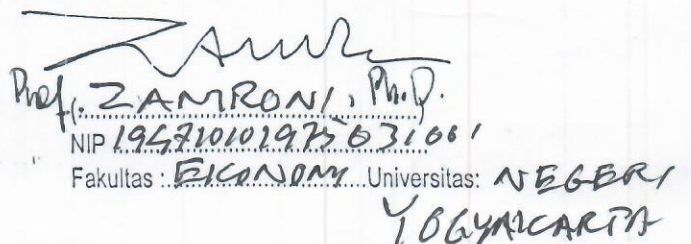 Prof. (. ZAMRONI, Ph.D.
NIP 194710101975031001
Fakultas : EKONOMI Universitas: NEGERI
YOGYAKARTA